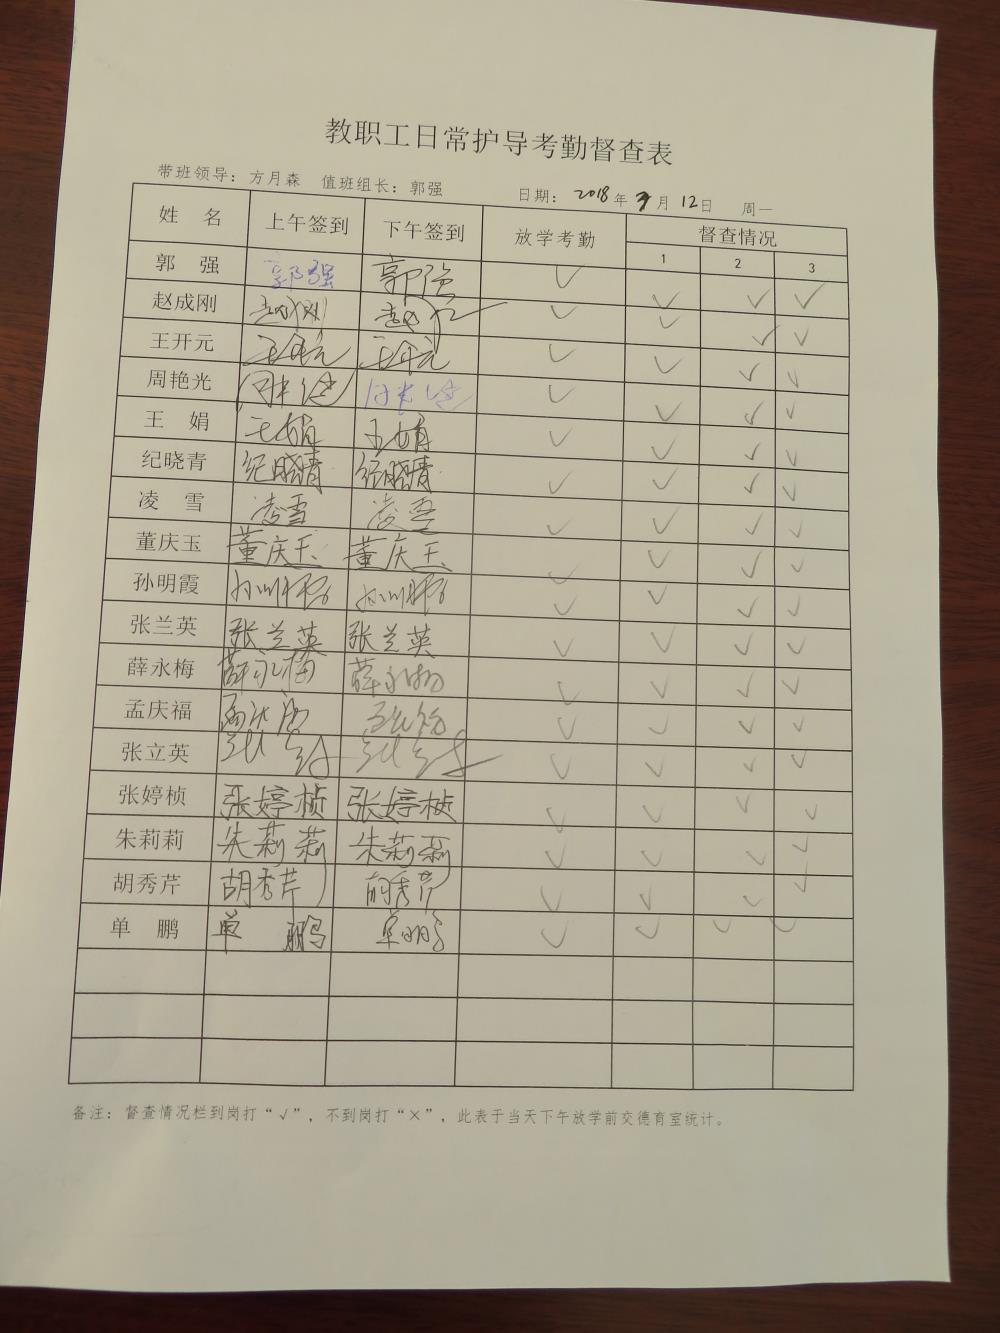 教职工日常护导考勤督查表
带班领导：方月森 值班组长：郭强 日期：2018年3月12日 周一
姓 名 上午签到 下午签到 放学考勤 督查情况
1 2 3
郭 强 郭强 郭强 √ √ √ √
赵成刚 赵成刚 √ √ √ √
王开元 王开元 王开元 √ √ √ √
周艳光 √ √ √ √
王 娟 王娟 王娟 √ √ √ √
纪晓青 纪晓青 纪晓青 √ √ √ √
凌 雪 凌雪 凌雪 √ √ √ √
董庆玉 董庆玉 董庆玉 √ √ √ √
孙明霞 孙明霞 孙明霞 √ √ √ √
张兰英 张兰英 张兰英 √ √ √ √
薛永梅 薛永梅 薛永梅 √ √ √ √
孟庆福 √ √ √ √
张立英 √ √ √ √
张婷桢 张婷桢 张婷桢 √ √ √ √
朱莉莉 朱莉莉 朱莉莉 √ √ √ √
胡秀芹 胡秀芹 胡秀芹 √ √ √ √
单 鹏 单鹏 单鹏 √ √ √ √
备注：督查情况栏到岗打“√”，不到岗打“×”，此表于当天下午放学前交德育室统计。